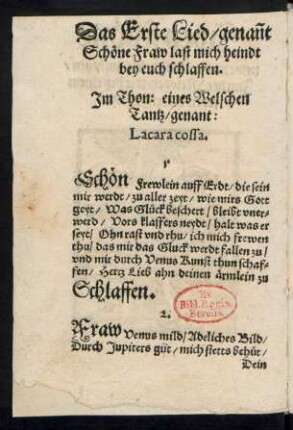 Das Erste Lied/genañt
Schöne Fraw last mich heindt
bey euch schlaffen.
Im Thon: eines Welschen
Tantz/genant:
La cara cossa.
1
Schön Frewlein auff Erdt/die sein
mir werdt/zu aller zeyt/wie mirs Gott
geyt/Was Glück beschert/bleibt vner-
werd/Vors klaffers neydt/halt was er
seyt/Ohn rast vnd rhu/ich mich frewen
thu/das mir das Gluck werdt fallen zu/
vnd mir durch Venus Kunst thun schaf-
fen/Hertz Lieb ahn deinen ärmlein zu
Schlaffen.
Ex
Bibl. Regia
Berolin.
2.
Fraw Venus mild/Adeliches Bild/
Durch Jupiters güt/mich stetts behüt/
Dein